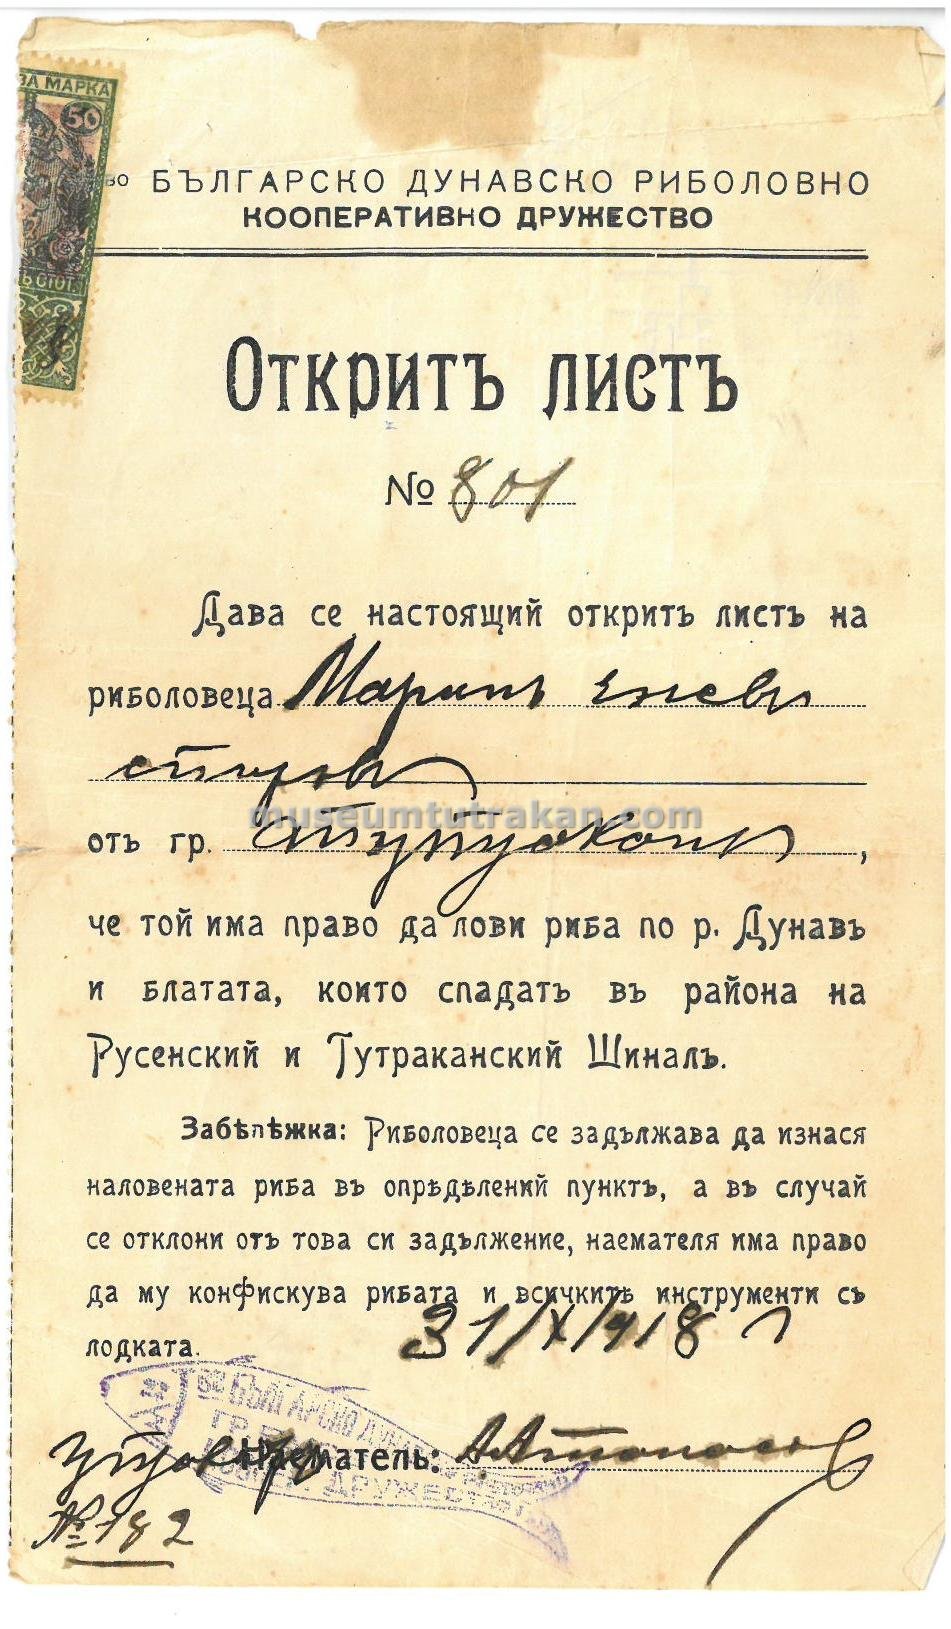 ЗА МАРКА
50
СТОТ.
во БЪЛГАРСКО ДУНАВСКО РИБОЛОВНО
КООПЕРАТИВНО ДРУЖЕСТВО
Открить листъ
№ 801
Дава се настоящий открить листъ на
риболовеца Маринъ Еневъ
museumtutrakan.com
отъ гр. Тутраканъ,
че той има право да лови риба по р. Дунавъ
и блатата, които спадатъ въ района на
Русенский и Тутраканский Шиналъ.
Забѣлѣжка: Риболовеца се задължава да изнася
наловената риба въ опрѣдѣлений пунктъ, а въ случай
се отклони отъ това си задължение, наемателя има право
да му конфискува рибата и всичкитѣ инструменти съ
лодката.
31/X/918 г
БЪЛГАРСКО
Наематель:
ДРУЖЕСТВО
№ 182